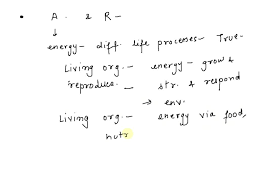 • A. & R -
↓
energy - diff. life processes - True-
Living org. - energy - grow &
reproduce. - str. & respond
→ env.
Living org. - energy via food,
nutr